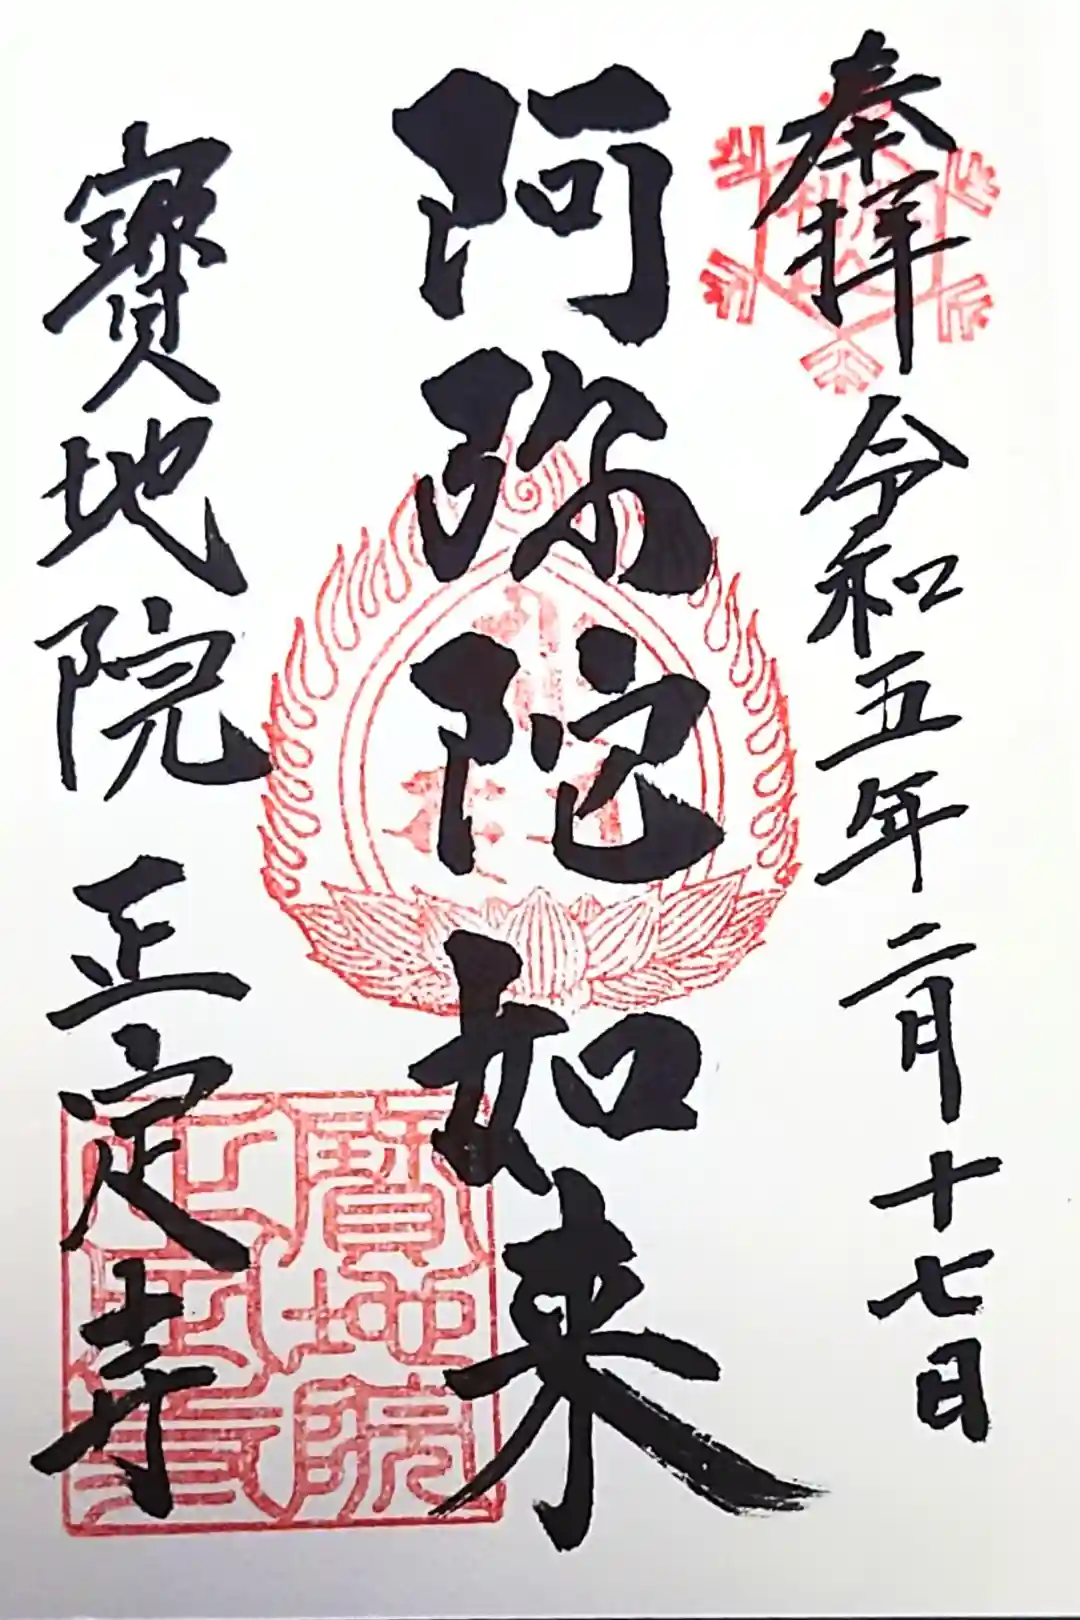 奉拝 令和五年二月十七日
阿弥陀如来
寳地院 正定寺
寳地院
正定寺